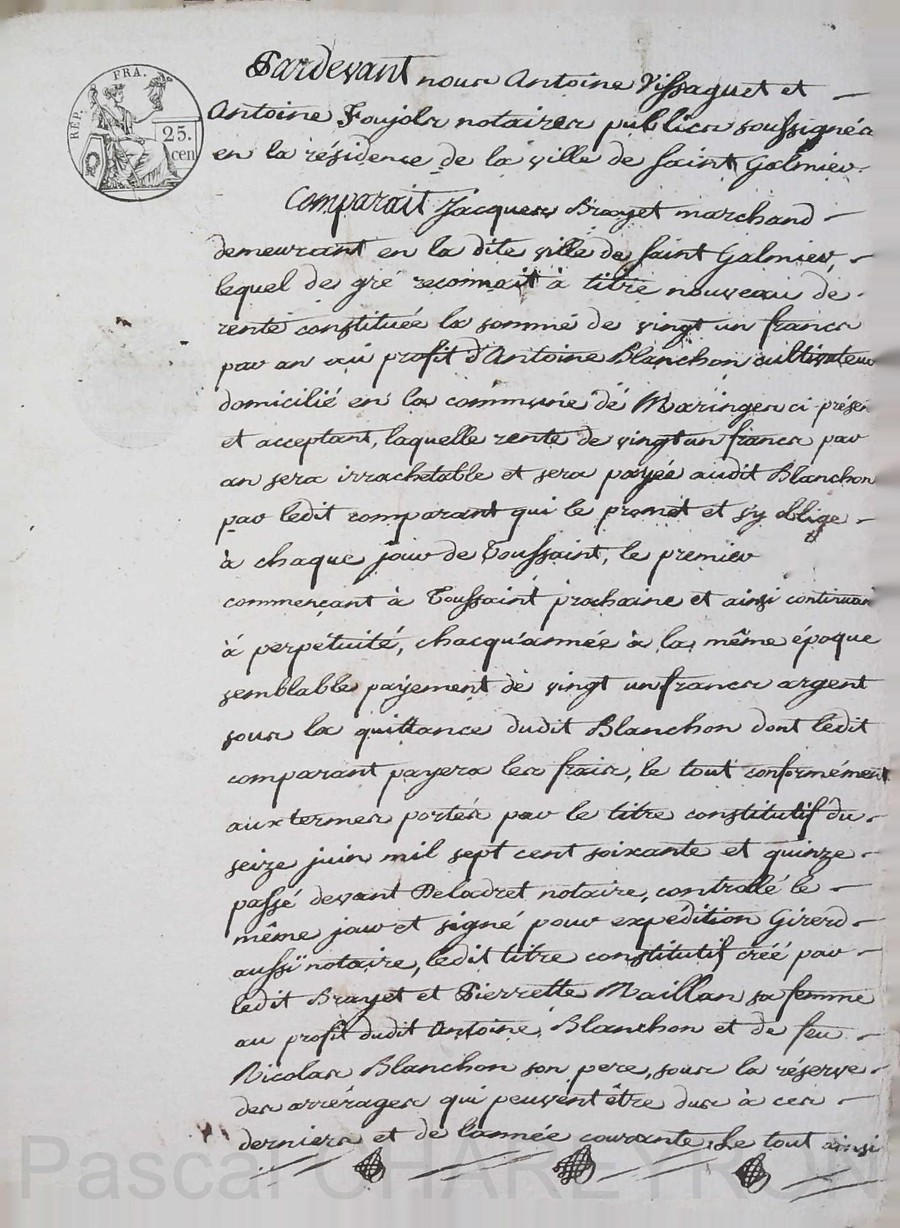 REP. FRA.
25.
cen
Pardevant nous Antoine Vissaguet et
Antoine Foujols notaires publics soussignés
en la résidence de la ville de Saint Galmier.
Comparait Jacques Brayet marchand
demeurant en la dite ville de Saint Galmier,
lequel de gré reconnait à titre nouveau de
rente constituée la somme de vingt un francs
par an au profit d'Antoine Blanchon cultivateur
domicilié en la commune de Maringes ci présen
et acceptant, laquelle rente de vingt un francs par
an sera irrachetable et sera payée audit Blanchon
par ledit comparant qui le promet et s'y oblige
à chaque jour de Toussaint, le premier
commençant à Toussaint prochaine et ainsi continuan
à perpétuité, chacqu'année à la même époque
semblable payement de vingt un francs argent
sous la quittance dudit Blanchon dont ledit
comparant payera les frais, le tout conformément
aux termes portés par le titre constitutif du
seize juin mil sept cent soixante et quinze
passé devant Deladret notaire, controllé le
même jour et signé pour expédition Girerd
aussi notaire, ledit titre constitutif créé par
ledit Brayet et Pierrette Maillan sa femme
au profit dudit Antoine Blanchon et de feu
Nicolas Blanchon son pere, sous la réserve
des arrérages qui peuvent être dus à ces
derniers et de l'année courante. Le tout ainsi
Pascal CHAREYRON